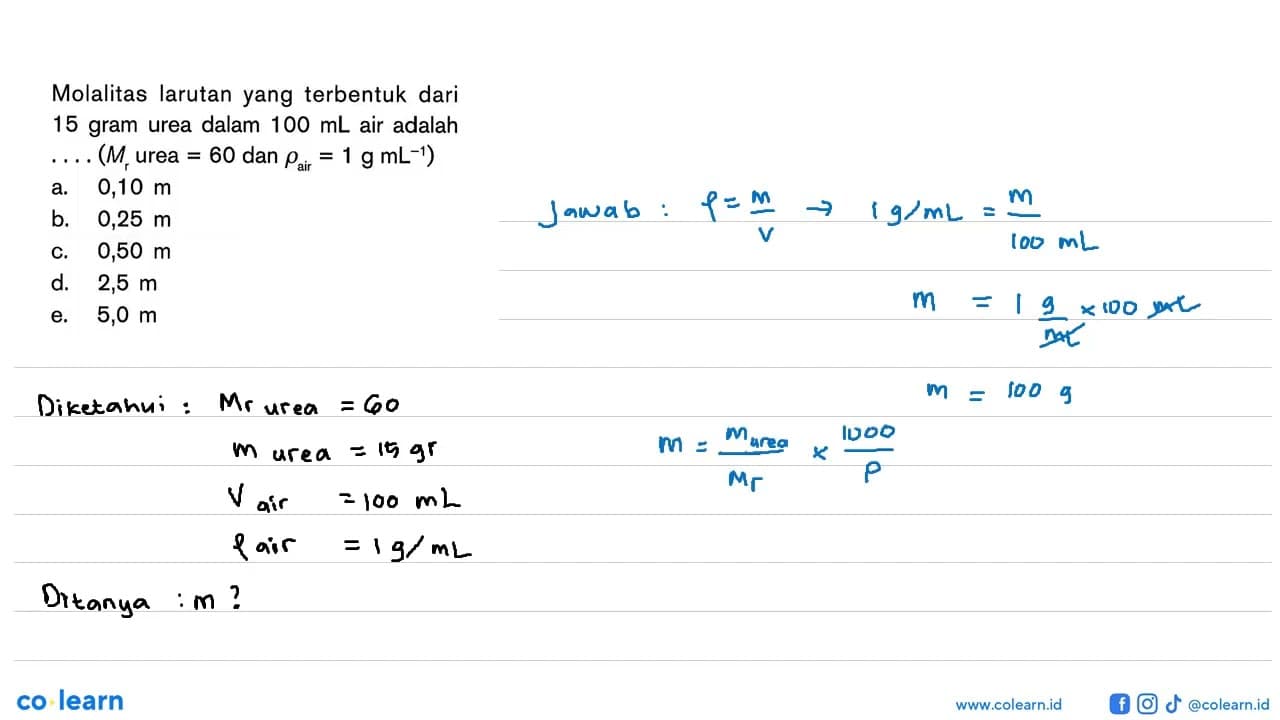 Molalitas larutan yang terbentuk dari
15 gram urea dalam 100 mL air adalah
. . . . (Mr urea = 60 dan ρair = 1 g mL⁻¹)
a. 0,10 m
b. 0,25 m
c. 0,50 m
d. 2,5 m
e. 5,0 m
Jawab : ρ = m/v → 1 g/mL = m/100 mL
m = 1 g/mL × 100 mL
m = 100 g
m = m urea/Mr × 1000/P
Diketahui : Mr urea = 60
m urea = 15 gr
V air = 100 mL
ρ air = 1 g/mL
Ditanya : m ?
co·learn
www.colearn.id
@colearn.id